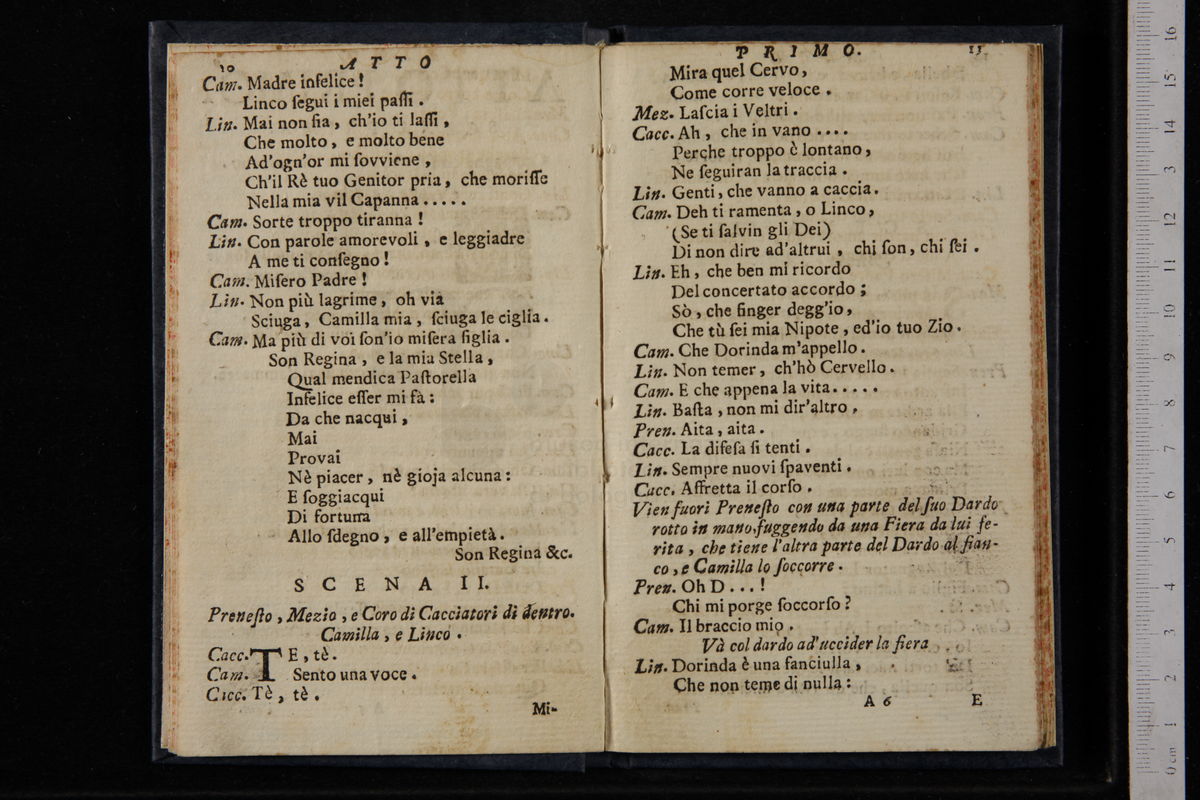 10 ATTO
Cam. Madre infelice!
Linco ſegui i miei paſſi.
Lin. Mai non ſia, ch'io ti laſſi,
Che molto, e molto bene
Ad'ogn'or mi ſovviene,
Ch'il Rè tuo Genitor pria, che moriſſe
Nella mia vil Capanna.....
Cam. Sorte troppo tiranna!
Lin. Con parole amorevoli, e leggiadre
A me ti conſegno!
Cam. Miſero Padre!
Lin. Non più lagrime, oh via
Sciuga, Camilla mia, ſciuga le ciglia.
Cam. Ma più di voi ſon'io miſera figlia.
Son Regina, e la mia Stella,
Qual mendica Paſtorella
Infelice eſſer mi fà:
Da che nacqui,
Mai
Provai
Nè piacer, nè gioja alcuna:
E ſoggiacqui
Di fortuna
Allo ſdegno, e all'empietà.
Son Regina &c.
SCENA II.
Preneſto, Mezio, e Coro di Cacciatori di dentro.
Camilla, e Linco.
Cacc. TE, tè.
Cam. Sento una voce.
Cacc. Tè, tè.
Mi-
PRIMO. 11
Mira quel Cervo,
Come corre veloce.
Mez. Laſcia i Veltri.
Cacc. Ah, che in vano....
Perche troppo è lontano,
Ne ſeguiran la traccia.
Lin. Genti, che vanno a caccia.
Cam. Deh ti ramenta, o Linco,
(Se ti ſalvin gli Dei)
Di non dire ad'altrui, chi ſon, chi ſei.
Lin. Eh, che ben mi ricordo
Del concertato accordo;
Sò, che finger degg'io,
Che tù ſei mia Nipote, ed'io tuo Zio.
Cam. Che Dorinda m'appello.
Lin. Non temer, ch'hò Cervello.
Cam. E che appena la vita.....
Lin. Baſta, non mi dir'altro.
Pren. Aita, aita.
Cacc. La difeſa ſi tenti.
Lin. Sempre nuovi ſpaventi.
Cacc. Affretta il corſo.
Vien fuori Preneſto con una parte del ſuo Dardo
rotto in mano, fuggendo da una Fiera da lui fe-
rita, che tiene l'altra parte del Dardo al fian-
co, e Camilla lo ſoccorre.
Pren. Oh D...!
Chi mi porge ſoccorſo?
Cam. Il braccio mio.
Và col dardo ad'uccider la fiera
Lin. Dorinda è una fanciulla,
Che non teme di nulla:
A 6 E